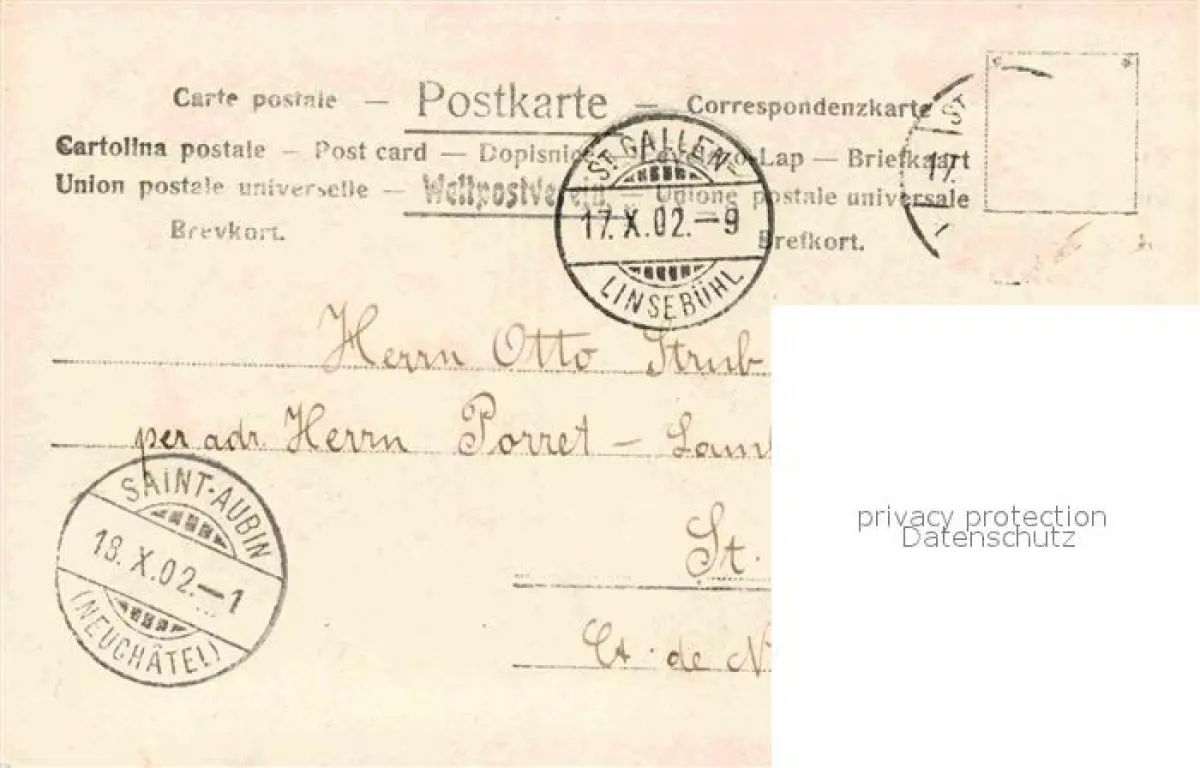 Carte postale — Postkarte — Correspondenzkarte
Cartolina postale — Post card — Dopisnice — Levelező-Lap — Briefkaart
Union postale universelle — Weltpostverein. — Unione postale universale
Brevkort. Brefkort.
ST. GALLEN
17. X. 02. — 9
LINSEBÜHL
ST
17.
Herrn Otto Strub
per adr. Herrn Porret —
St.
Ct. de N
SAINT-AUBIN
18. X. 02. — 1
(NEUCHÂTEL)
privacy protection
Datenschutz